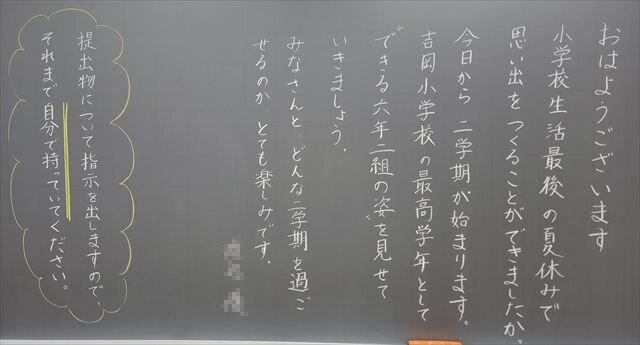 おはようございます
小学校生活最後の夏休みで
思い出をつくることができましたか。
今日から二学期が始まります。
吉岡小学校の最高学年として
"できる六年二組の姿"を見せて
いきましょう。
みなさんと、どんな二学期を過ご
せるのか、とても楽しみです。
提出物について指示を出しますので、
それまで自分で持っていてください。